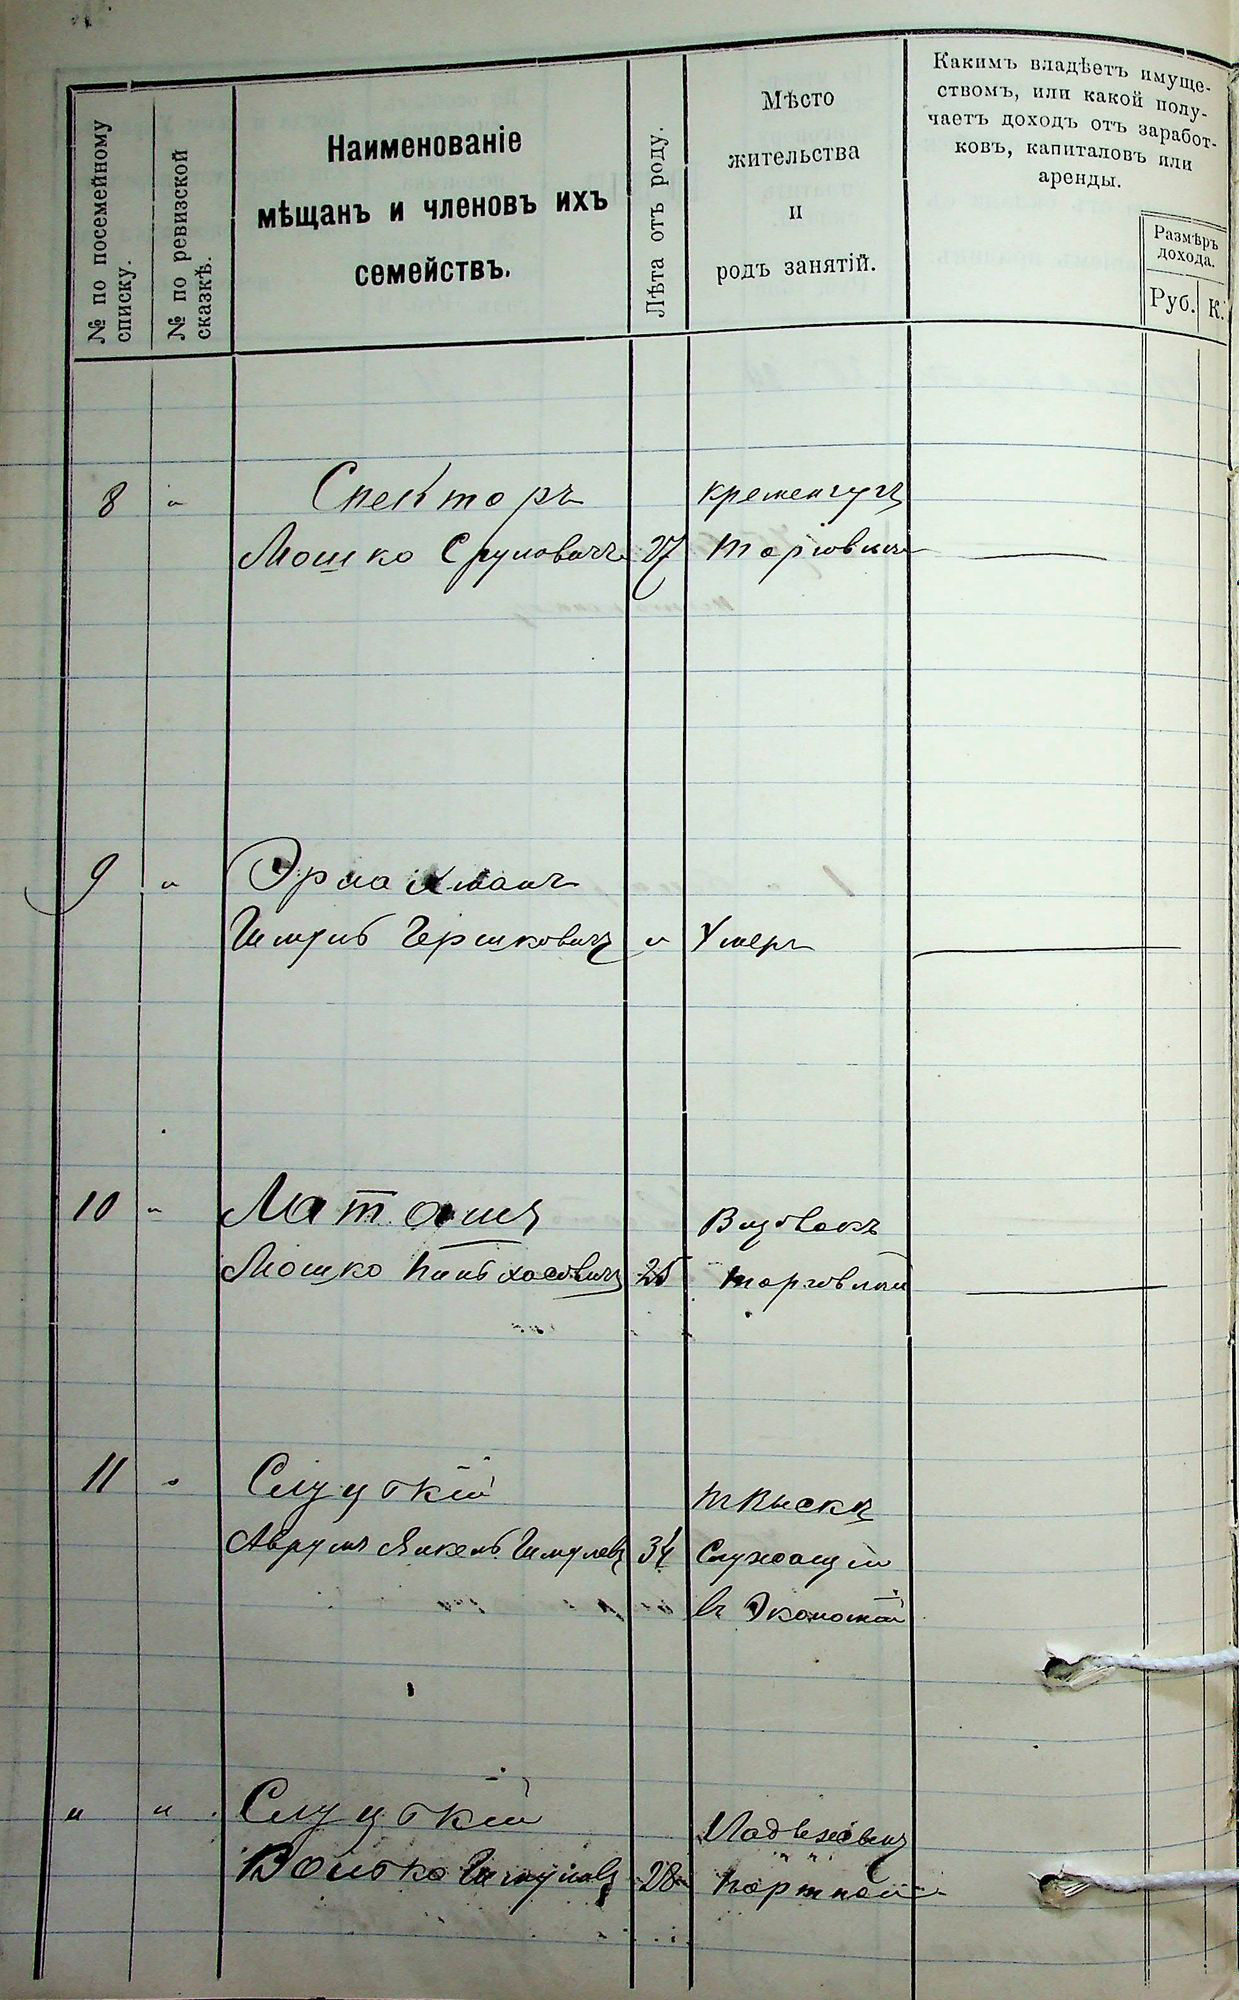 № по посемейному
списку.
№ по ревизской
сказкѣ.
Наименованіе
мѣщанъ и членовъ ихъ
семействъ.
Лѣта отъ роду.
Мѣсто
жительства
и
родъ занятій.
Какимъ владѣетъ имуще-
ствомъ, или какой полу-
чаетъ доходъ отъ заработ-
ковъ, капиталовъ или
аренды.
Размѣръ
дохода.
Руб. К.
8 " Спекторъ Кременчугъ
Мошко Сруловичъ 27 торговлею
9 "
Шмуль Гершковичъ " Умеръ
10 "
Мошко Пинхасовичъ 25 торговлей
11 " Слуцкій
Аврумъ Янкель Шмулевъ 34 Служащій
въ Экономіи
" " Слуцкій
Волько Шмулевъ 28 портной